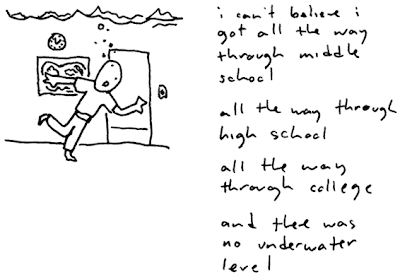 i can't believe i
got all the way
through middle
school
all the way through
high school
all the way
through college
and there was
no underwater
level